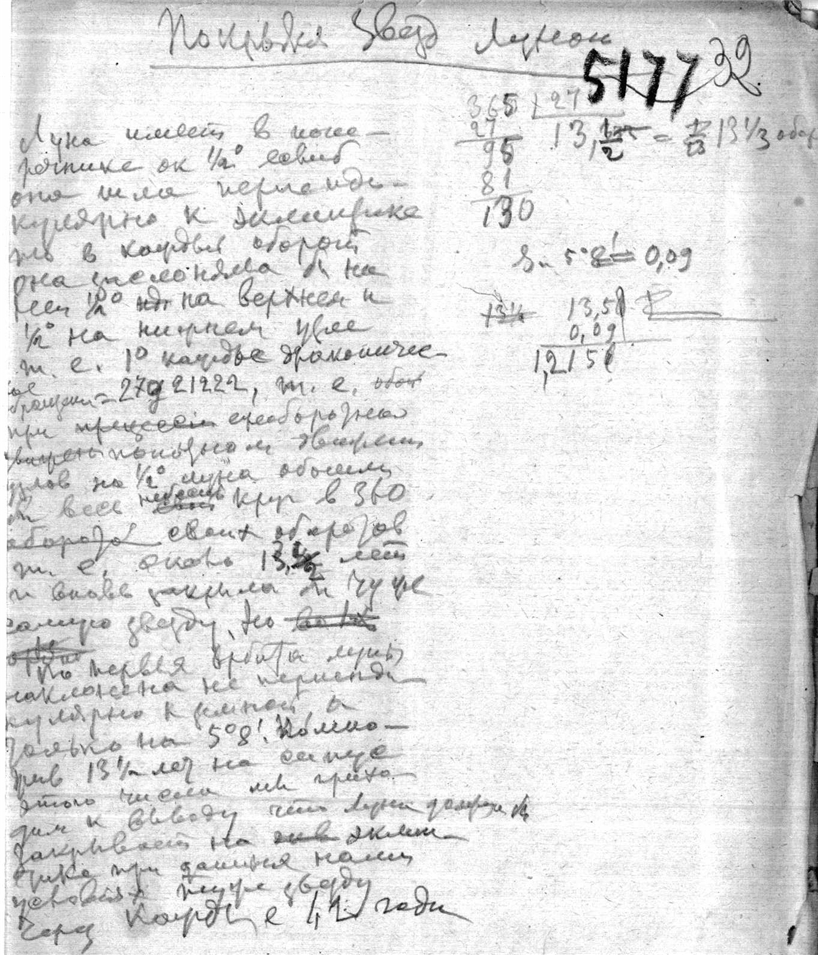 Покрытия Звезд Луной
5177
32.
Луна имеет в попе-
речнике ок 1/2°
она шла перпенди-
кулярно к эклиптике
то в каждый оборот
она заслоняла б на
1/2° на верхнем и
1/2° на нижнем узле
т. е. 1° каждое драконичес-
кое
обращение = 27д21222, т. е.
при
попятном движении
узлов на 1/2° луна обошла
б весь круг в 360
оборотов своих оборотов
т. е. около 13,1/2 лет
и вновь закрыла б ту же
самую звезду. Но
Но первая орбита луны
наклонена не перпенди-
кулярно к а
только на 5°8'. Помно-
жив 13 1/2 лет на синус
этого числа мы прихо-
дим к выводу что Луна должна б
закрывать на эклип-
тике при данных нами
условиях ту же звезду
через каждые 1,2 года
365 | 27
27
95
81
130
13,1/2 = 13 1/3 обор
S.. 5°8' = 0,09
13 1/2
13,5
0,09
1,215